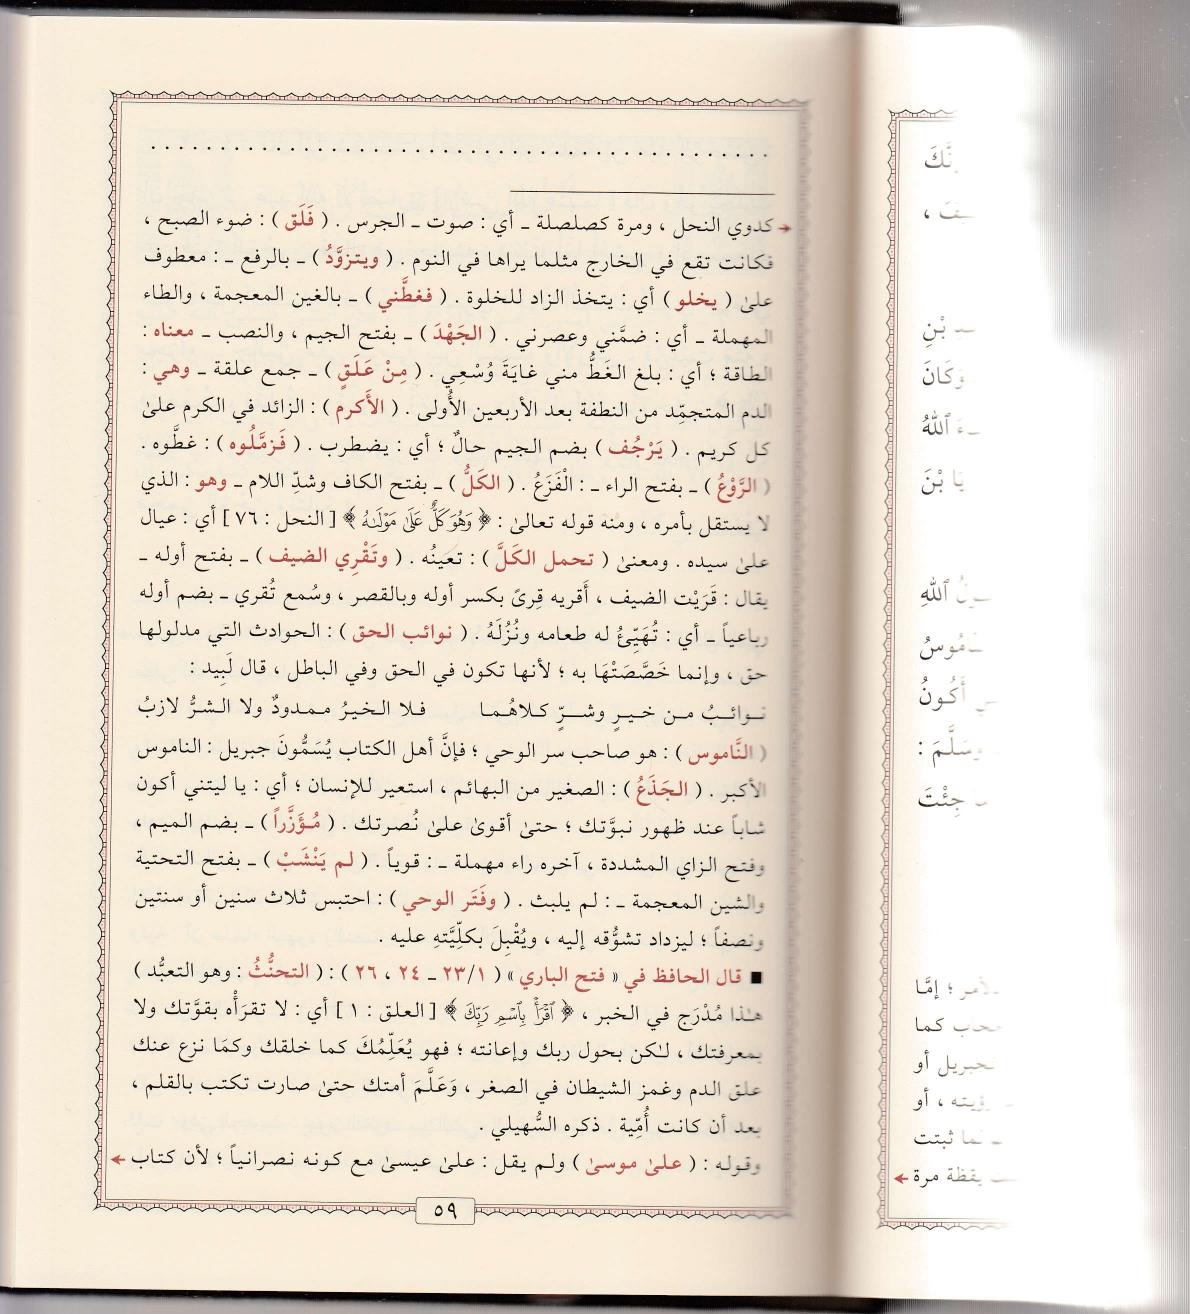 كدوي النحل ، ومرة كصلصلة ـ أي : صوت ـ الجرس . ( فَلَق ) : ضوء الصبح ،
فكانت تقع في الخارج مثلما يراها في النوم . ( ويتزوَّدُ ) ـ بالرفع ـ : معطوف
علىٰ ( يخلو ) أي : يتخذ الزاد للخلوة . ( فغطَّني ) ـ بالغين المعجمة ، والطاء
المهملة ـ أي : ضمَّني وعصرني . ( الجَهْدَ ) ـ بفتح الجيم ، والنصب ـ معناه :
الطاقة ؛ أي : بلغ الغَطُّ مني غايَةَ وُسْعِي . ( مِنْ عَلَقٍ ) ـ جمع علقة ـ وهي :
الدم المتجمِّد من النطفة بعد الأربعين الأُولى . ( الأَكرم ) : الزائد في الكرم علىٰ
كل كريم . ( يَرْجُف ) بضم الجيم حالٌ ؛ أي : يضطرب . ( فَزمَّلُوه ) : غطَّوه .
( الرَّوْعُ ) ـ بفتح الراء ـ : الْفَزَعُ . ( الكَلُّ ) ـ بفتح الكاف وشدِّ اللام ـ وهو : الذي
لا يستقل بأمره ، ومنه قوله تعالىٰ : ﴿ وَهُوَ كَلٌّ عَلَىٰ مَوْلَىٰهُ ﴾ [ النحل : ٧٦ ] أي : عيال
علىٰ سيده . ومعنىٰ ( تحمل الكَلَّ ) : تعينُه . ( وتَقْرِي الضيف ) ـ بفتح أوله ـ
يقال : قَرَيْت الضيف ، أَقريه قِرىً بكسر أوله وبالقصر ، وسُمع تُقري ـ بضم أوله
رباعياً ـ أي : تُهَيِّئُ له طعامه ونُزُلَهُ . ( نوائب الحق ) : الحوادث التي مدلولها
حق ، وإنما خَصَّصَتْهَا به ؛ لأنها تكون في الحق وفي الباطل ، قال لَبِيد :
نوائبُ من خيرٍ وشرٍّ كلاهُما فلا الخيرُ ممدودٌ ولا الشرُّ لازبُ
( النَّاموس ) : هو صاحب سر الوحي ؛ فإنَّ أهل الكتاب يُسَمُّونَ جبريل : الناموس
الأكبر . ( الجَذَعُ ) : الصغير من البهائم ، استعير للإنسان ؛ أي : يا ليتني أكون
شاباً عند ظهور نبوَّتك ؛ حتىٰ أقوىٰ علىٰ نُصرتك . ( مُؤَزَّراً ) ـ بضم الميم ،
وفتح الزاي المشددة ، آخره راء مهملة ـ : قوياً . ( لم يَنْشَبْ ) ـ بفتح التحتية
والشين المعجمة ـ : لم يلبث . ( وفَتَر الوحي ) : احتبس ثلاث سنين أو سنتين
ونصفاً ؛ ليزداد تشوُّقه إليه ، ويُقْبِلَ بكلِّيَّتهِ عليه .
■ قال الحافظ في « فتح الباري » ( ١/ ٢٣ ـ ٢٤ ، ٢٦ ) : ( التحنُّثُ : وهو التعبُّد )
هـٰذا مُدْرَج في الخبر ، ﴿ ٱقْرَأْ بِٱسْمِ رَبِّكَ ﴾ [ العلق : ١ ] أي : لا تقرَأْه بقوَّتك ولا
بمعرفتك ، لـٰكن بحول ربك وإعانته ؛ فهو يُعَلِّمُكَ كما خلقك وكمَا نزع عنك
علق الدم وغمز الشيطان في الصغر ، وَعَلَّمَ أمتك حتىٰ صارت تكتب بالقلم ،
بعد أن كانت أُمِّية . ذكره السُّهيلي .
وقوله : ( علىٰ موسىٰ ) ولم يقل : علىٰ عيسىٰ مع كونه نصرانياً ؛ لأن كتاب
٥٩
بْنِ
وَكَانَ
ٱللهُ
يَا بْنَ
ٱللهِ
أَكُونُ
وَسَلَّمَ :
جِئْتَ
إمَّا
كما
أو
رؤيته ، أو
ثبتت
يقظة مرة